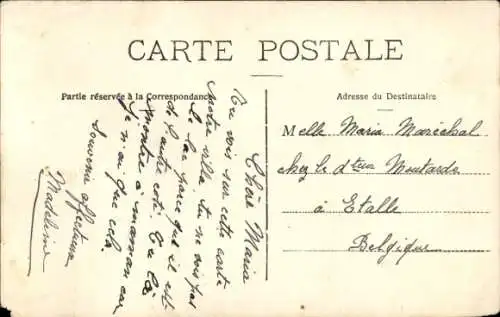 CARTE POSTALE
Partie réservée à la Correspondance
Adresse du Destinataire
Chère Maria
Tu vois sur cette carte
notre ville tu ne vois pas
le lac parce qu'il est
de l'autre côté. Tu la
montre à maman car
je n'ai que cela.
Souvenir affectueux
Madeleine
Melle Maria Maréchal
chez le dteur Moutarde
à Etalle
Belgique